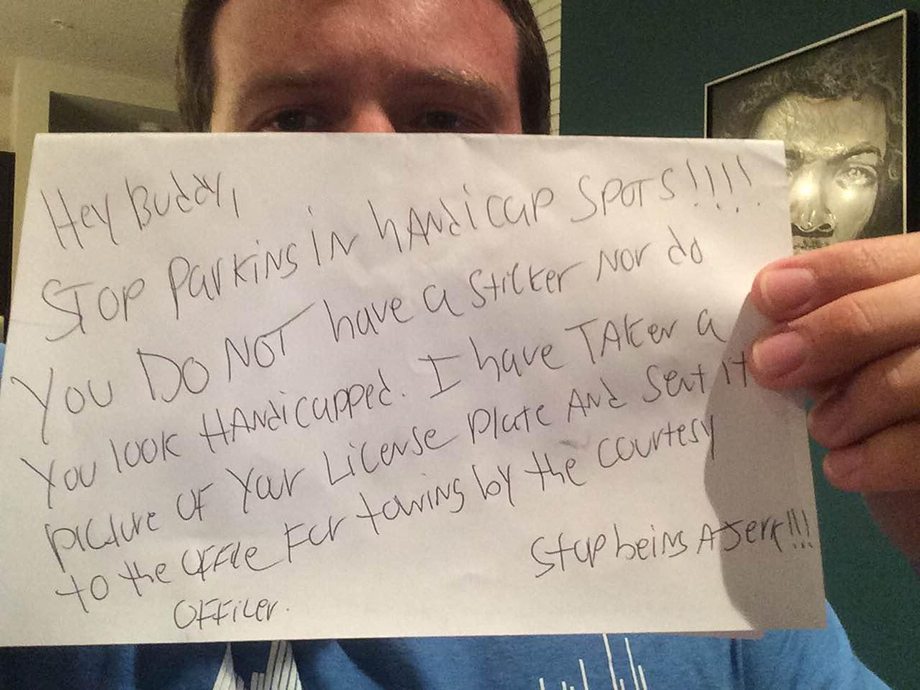 Hey Buddy,
STOP Parking IN hANdicap SPOTS!!!!
You DO NOT have a Sticker Nor do
You look HANdicapped. I have TAken a
picture of Your License Plate ANd Sent it
to the office For towing by the Courtesy
Officer.
Stop being A Jerk!!!